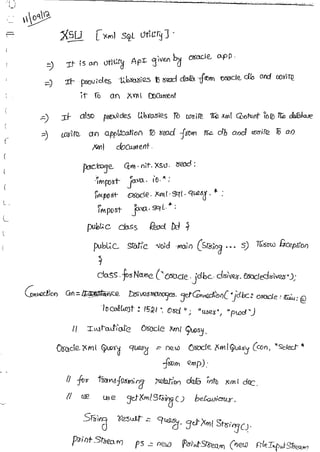 11/09/12
XSU [xml SQL Utility].
=) It is an Utility API given by oracle app.
=) It provides libraries to read data from oracle db and write
it to an Xml Document
=) It also provides libraries to write the xml content into the database
=) write an application to read from the db and write to an
xml document.
package com.nit.xsu.read;
import java.io.*;
import oracle.xml.sql.query.*;
import java.sql.*;
public class Read Dd {
public static void main (String ... s) throw Exception
{
class.forName("oracle.jdbc.driver.Oracledriver");
Connection con = Drivermanager.getConnection("jdbc:oracle:thin:@
localhost:1521:Orcl", "user", "pwd")
// Instantiate Oracle Xml Query.
Oracle Xml Query query = new Oracle XmlQuery (con, "Select *
from emp);
// for transforming relation data into xml doc.
// we use getXmlString() behaviour.
String result = query.getXmlString();
Print Stream ps = new PrintStream (new FileInputStream